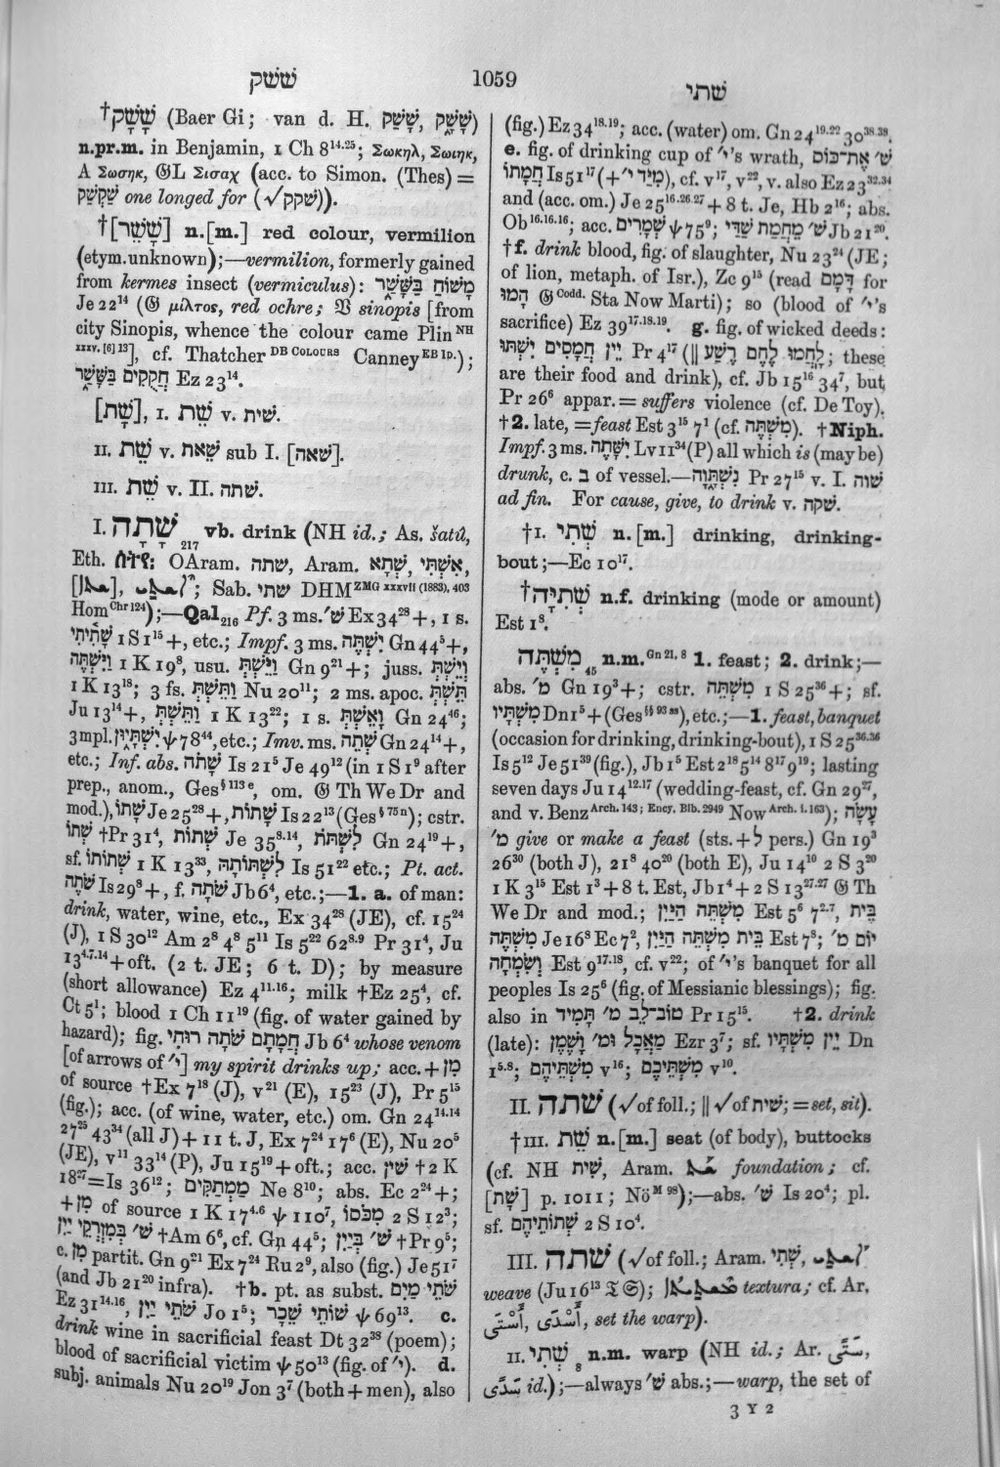 ששק
1059
שתי
†שָׁשָׁק (Baer Gi; van d. H. שָׁשַׁק, שָׁשָׁק)
n.pr.m. in Benjamin, 1 Ch 8¹⁴·²⁵; Σωκηλ, Σωιηκ,
A Σωσηκ, 𝔊L Σισαχ (acc. to Simon. (Thes) =
שָׁקְשַׁק one longed for (√שׁקק)).
†[שָׁשֵׁר] n.[m.] red colour, vermilion
(etym. unknown);—vermilion, formerly gained
from kermes insect (vermiculus): מָשׁוֹחַ בַּשָּׁשַׁר
Je 22¹⁴ (𝔊 μίλτος, red ochre; 𝔙 sinopis [from
city Sinopis, whence the colour came Plin NH
xxxv. [6] 13], cf. Thatcher DB COLOURS Canney EB ib.);
חֲקֻקִים בַּשָּׁשַׁר Ez 23¹⁴.
[שָׁת], I. שֵׁת v. שׁית.
II. שֵׁת v. שְׁאֵת sub I. [שׁאה].
III. שֵׁת v. II. שׁתה.
I. שָׁתָה 217 vb. drink (NH id.; As. šatû,
Eth. OAram. שתה, Aram. אִשְׁתִּי, שְׁתָא,
Sab. שתי DHM ZMG xxxvii (1883), 403
Hom Chr 124);—Qal 216 Pf. 3 ms. שׁ׳ Ex 34²⁸ +, 1 s.
שָׁתִיתִי 1 S 1¹⁵ +, etc.; Impf. 3 ms. יִשְׁתֶּה Gn 44⁵ +,
וַיִּשְׁתֶּה 1 K 19⁸, usu. וַיֵּשְׁתְּ Gn 9²¹ +; juss. וְיֵשְׁתְּ
1 K 13¹⁸; 3 fs. וַתֵּשְׁתְּ Nu 20¹¹; 2 ms. apoc. תֵּשְׁתְּ
Ju 13¹⁴ +, וַתֵּשְׁתְּ 1 K 13²²; 1 s. וָאֵשְׁתְּ Gn 24⁴⁶;
3 mpl. יִשְׁתָּיוּן ψ 78⁴⁴, etc.; Imv. ms. שְׁתֵה Gn 24¹⁴ +,
etc.; Inf. abs. שָׁתֹה Is 21⁵ Je 49¹² (in 1 S 1⁹ after
prep., anom., Ges § 113 e, om. 𝔊 Th We Dr and
mod.), שָׁתוֹ Je 25²⁸ +, שָׁתוֹת Is 22¹³ (Ges § 75 n); cstr.
שְׁתוֹ †Pr 31⁴, שְׁתוֹת Je 35⁸·¹⁴, לִשְׁתֹּת Gn 24¹⁹ +,
sf. שְׁתוֹתוֹ 1 K 13³³, לִשְׁתּוֹתָהּ Is 51²² etc.; Pt. act.
שֹׁתֶה Is 29⁸ +, f. שֹׁתָה Jb 6⁴, etc.;—1. a. of man:
drink, water, wine, etc., Ex 34²⁸ (JE), cf. 15²⁴
(J), 1 S 30¹² Am 2⁸ 4⁸ 5¹¹ Is 5²² 62⁸·⁹ Pr 31⁴, Ju
13⁴·⁷·¹⁴ + oft. (2 t. JE; 6 t. D); by measure
(short allowance) Ez 4¹¹·¹⁶; milk †Ez 25⁴, cf.
Ct 5¹; blood 1 Ch 11¹⁹ (fig. of water gained by
hazard); fig. חֲמָתָם שֹׁתָה רוּחִי Jb 6⁴ whose venom
[of arrows of י׳] my spirit drinks up; acc. + מִן
of source †Ex 7¹⁸ (J), v²¹ (E), 15²³ (J), Pr 5¹⁵
(fig.); acc. (of wine, water, etc.) om. Gn 24¹⁴·¹⁴
27²⁵ 43³⁴ (all J) + 11 t. J, Ex 7²⁴ 17⁶ (E), Nu 20⁵
(JE), v¹¹ 33¹⁴ (P), Ju 15¹⁹ + oft.; acc. שׁין †2 K
18²⁷ = Is 36¹²; מַמְתַקִּים Ne 8¹⁰; abs. Ec 2²⁴ +;
+ מִן of source 1 K 17⁴·⁶ ψ 110⁷, מִכֹּסוֹ 2 S 12³;
שׁ׳ בְּמִזְרְקֵי יַיִן †Am 6⁶, cf. Gn 44⁵; שׁ׳ בְּיַיִן †Pr 9⁵;
c. מִן partit. Gn 9²¹ Ex 7²⁴ Ru 2⁹, also (fig.) Je 51⁷
(and Jb 21²⁰ infra). †b. pt. as subst. שֹׁתֵי מַיִם
Ez 31¹⁴·¹⁶, שֹׁתֵי יָיִן Jo 1⁵; שׁוֹתֵי שֵׁכָר ψ 69¹³. c.
drink wine in sacrificial feast Dt 32³⁸ (poem);
blood of sacrificial victim ψ 50¹³ (fig. of י׳). d.
subj. animals Nu 20¹⁹ Jon 3⁷ (both + men), also
(fig.) Ez 34¹⁸·¹⁹; acc. (water) om. Gn 24¹⁹·²² 30³⁸·³⁸.
e. fig. of drinking cup of י׳'s wrath, שׁ׳ אֶת־כּוֹס
חֲמָתוֹ Is 51¹⁷ (+ מִיַּד י׳), cf. v¹⁷, v²², v. also Ez 23³²·³⁴
and (acc. om.) Je 25¹⁶·²⁶·²⁷ + 8 t. Je, Hb 2¹⁶; abs.
Ob¹⁶·¹⁶·¹⁶; acc. שְׁמָרִים ψ 75⁹; שׁ׳ מֵחֲמַת שַׁדַּי Jb 21²⁰.
†f. drink blood, fig. of slaughter, Nu 23²⁴ (JE;
of lion, metaph. of Isr.), Zc 9¹⁵ (read דָּמָם for
הָמוּ 𝔊 Codd. Sta Now Marti); so (blood of י׳'s
sacrifice) Ez 39¹⁷·¹⁸·¹⁹. g. fig. of wicked deeds:
יֵין חֲמָסִים יִשְׁתּוּ Pr 4¹⁷ (|| לָחֲמוּ לֶחֶם רֶשַׁע; these
are their food and drink), cf. Jb 15¹⁶ 34⁷, but
Pr 26⁶ appar. = suffers violence (cf. De Toy).
†2. late, = feast Est 3¹⁵ 7¹ (cf. מִשְׁתֶּה). †Niph.
Impf. 3 ms. יִשָּׁתֶה Lv 11³⁴ (P) all which is (may be)
drunk, c. בְּ of vessel.—נִשְׁתָּוָה Pr 27¹⁵ v. I. שׁוה
ad fin. For cause, give, to drink v. שׁקה.
†I. שְׁתִי n.[m.] drinking, drinking-
bout;—Ec 10¹⁷.
†שְׁתִיָּה n.f. drinking (mode or amount)
Est 1⁸.
מִשְׁתֶּה 45 n.m. Gn 21, 8 1. feast; 2. drink;—
abs. מ׳ Gn 19³ +; cstr. מִשְׁתֵּה 1 S 25³⁶ +; sf.
מִשְׁתָּיו Dn 1⁵ + (Ges §§ 93 ss), etc.;—1. feast, banquet
(occasion for drinking, drinking-bout), 1 S 25³⁶·³⁶
Is 5¹² Je 51³⁹ (fig.), Jb 1⁵ Est 2¹⁸ 5¹⁴ 8¹⁷ 9¹⁹; lasting
seven days Ju 14¹²·¹⁷ (wedding-feast, cf. Gn 29²⁷,
and v. Benz Arch. 143; Ency. Bib. 2949 Now Arch. i. 163); עָשָׂה
מ׳ give or make a feast (sts. + לְ pers.) Gn 19³
26³⁰ (both J), 21⁸ 40²⁰ (both E), Ju 14¹⁰ 2 S 3²⁰
1 K 3¹⁵ Est 1³ + 8 t. Est, Jb 1⁴ + 2 S 13²⁷·²⁷ 𝔊 Th
We Dr and mod.; מִשְׁתֵּה הַיַּיִן Est 5⁶ 7²·⁷, בֵּית
מִשְׁתֶּה Je 16⁸ Ec 7², בֵּית מִשְׁתֵּה הַיַּיִן Est 7⁸; יוֹם מ׳
וְשִׂמְחָה Est 9¹⁷·¹⁸, cf. v²²; of י׳'s banquet for all
peoples Is 25⁶ (fig. of Messianic blessings); fig.
also in טוֹב־לֵב מ׳ תָּמִיד Pr 15¹⁵. †2. drink
(late): מַאֲכָל וּמ׳ וָשֶׁמֶן Ezr 3⁷; sf. יֵין מִשְׁתָּיו Dn
1⁵·⁸; מִשְׁתֵּיהֶם v¹⁶; מִשְׁתֵּיכֶם v¹⁰.
II. שׁתה (√ of foll.; || √ of שׁית; = set, sit).
†III. שֵׁת n.[m.] seat (of body), buttocks
(cf. NH שִׁית, Aram. foundation; cf.
[שָׁת] p. 1011; Nö M 98);—abs. שׁ׳ Is 20⁴; pl.
sf. שְׁתוֹתֵיהֶם 2 S 10⁴.
III. שׁתה (√ of foll.; Aram. שְׁתִי,
weave (Ju 16¹³ 𝔗 𝔖); textura; cf. Ar.
أَسْدَى, أَسْتَى, set the warp).
II. שְׁתִי 8 n.m. warp (NH id.; Ar. سَتًى,
سَدًى id.);—always שׁ׳ abs.;—warp, the set of
3 Y 2